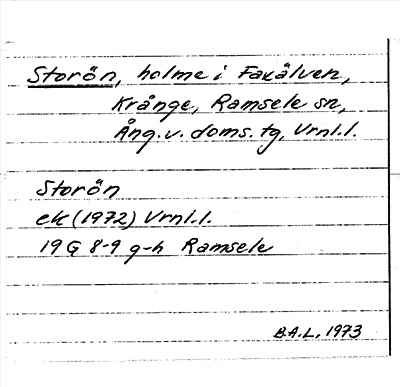 Storön, holme i Faxälven,
Krånge, Ramsele sn,
Ång.v. doms. tg, Vrnl.l.
Storön
ek (1972) Vrnl.l.
19 G 8-9 g-h Ramsele
B.A.L. 1973